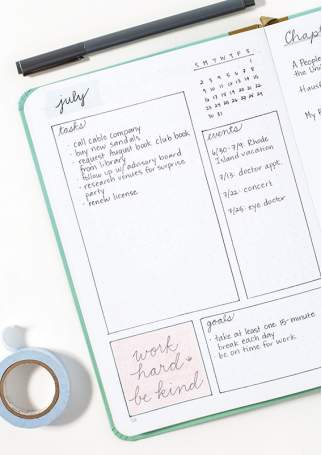 july
S M T W T F S
1
2 3 4 5 6 7 8
9 10 11 12 13 14 15
16 17 18 19 20 21 22
23 24 25 26 27 28 29
30 31
tasks
· call cable company
· buy new sandals
· request August book club book
from library
· follow up w/advisory board
· research venues for surprise
party
· renew license
events
6/30-7/9: Rhode
Island vacation
7/13: doctor appt.
7/22: concert
7/25: eye doctor
work
hard
be kind
goals
· take at least one 15-minute
break each day
· be on time for work
Chapt
A People
the Uni
My